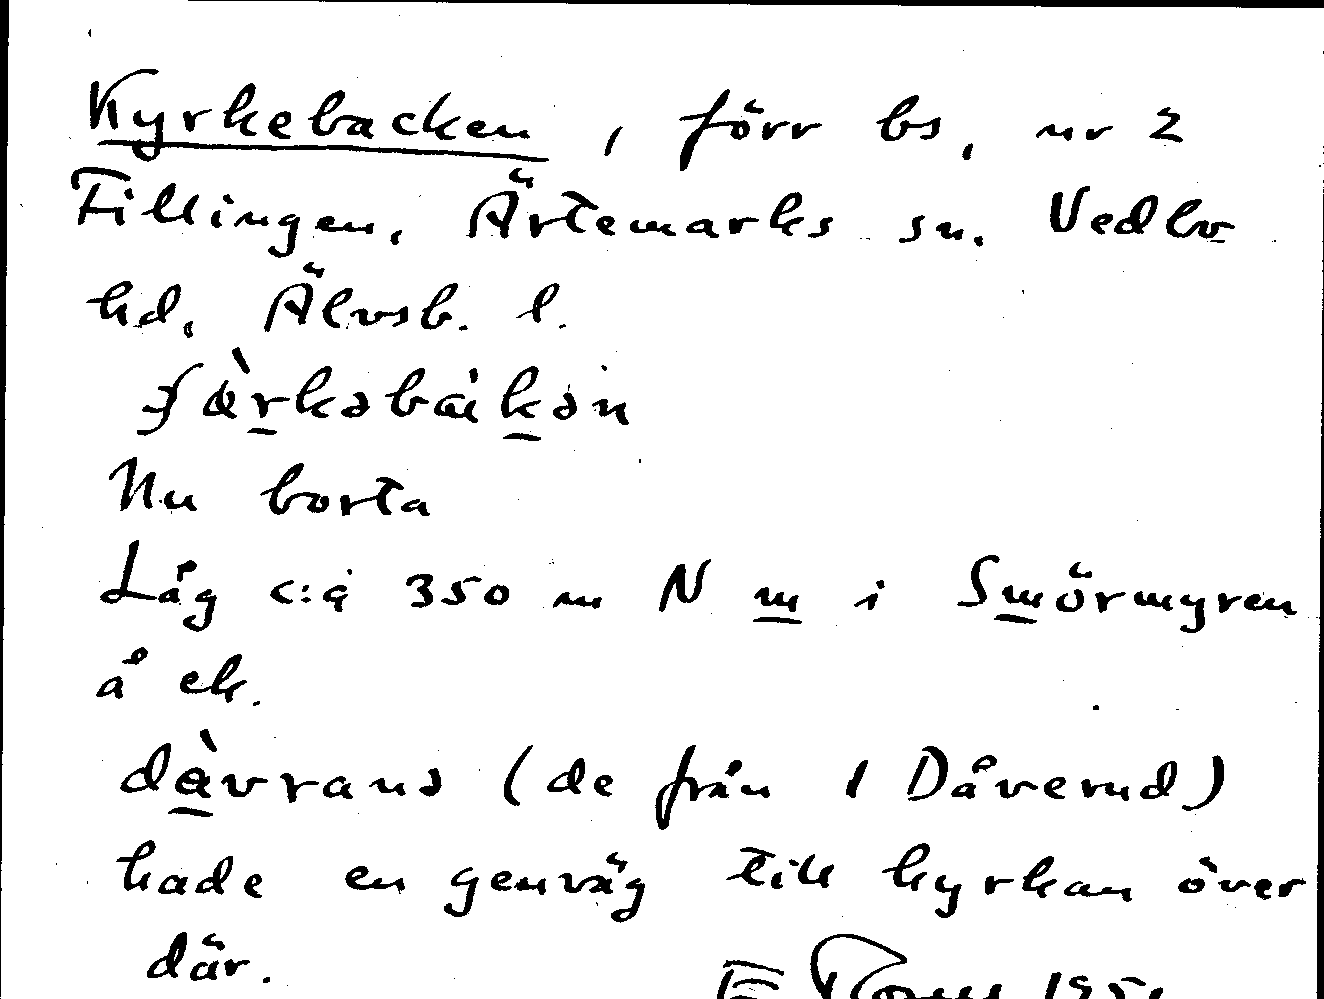 Kyrkebacken, förr bs, nr 2
Fillingen, Ärtemarks sn. Vedbo
hd, Älvsb. l.
Nu borta
Låg c:a 350 m N m i Smörmyren
å ek.
dàvranə (de från 1 Dåverud)
hade en genväg till kyrkan över
där.